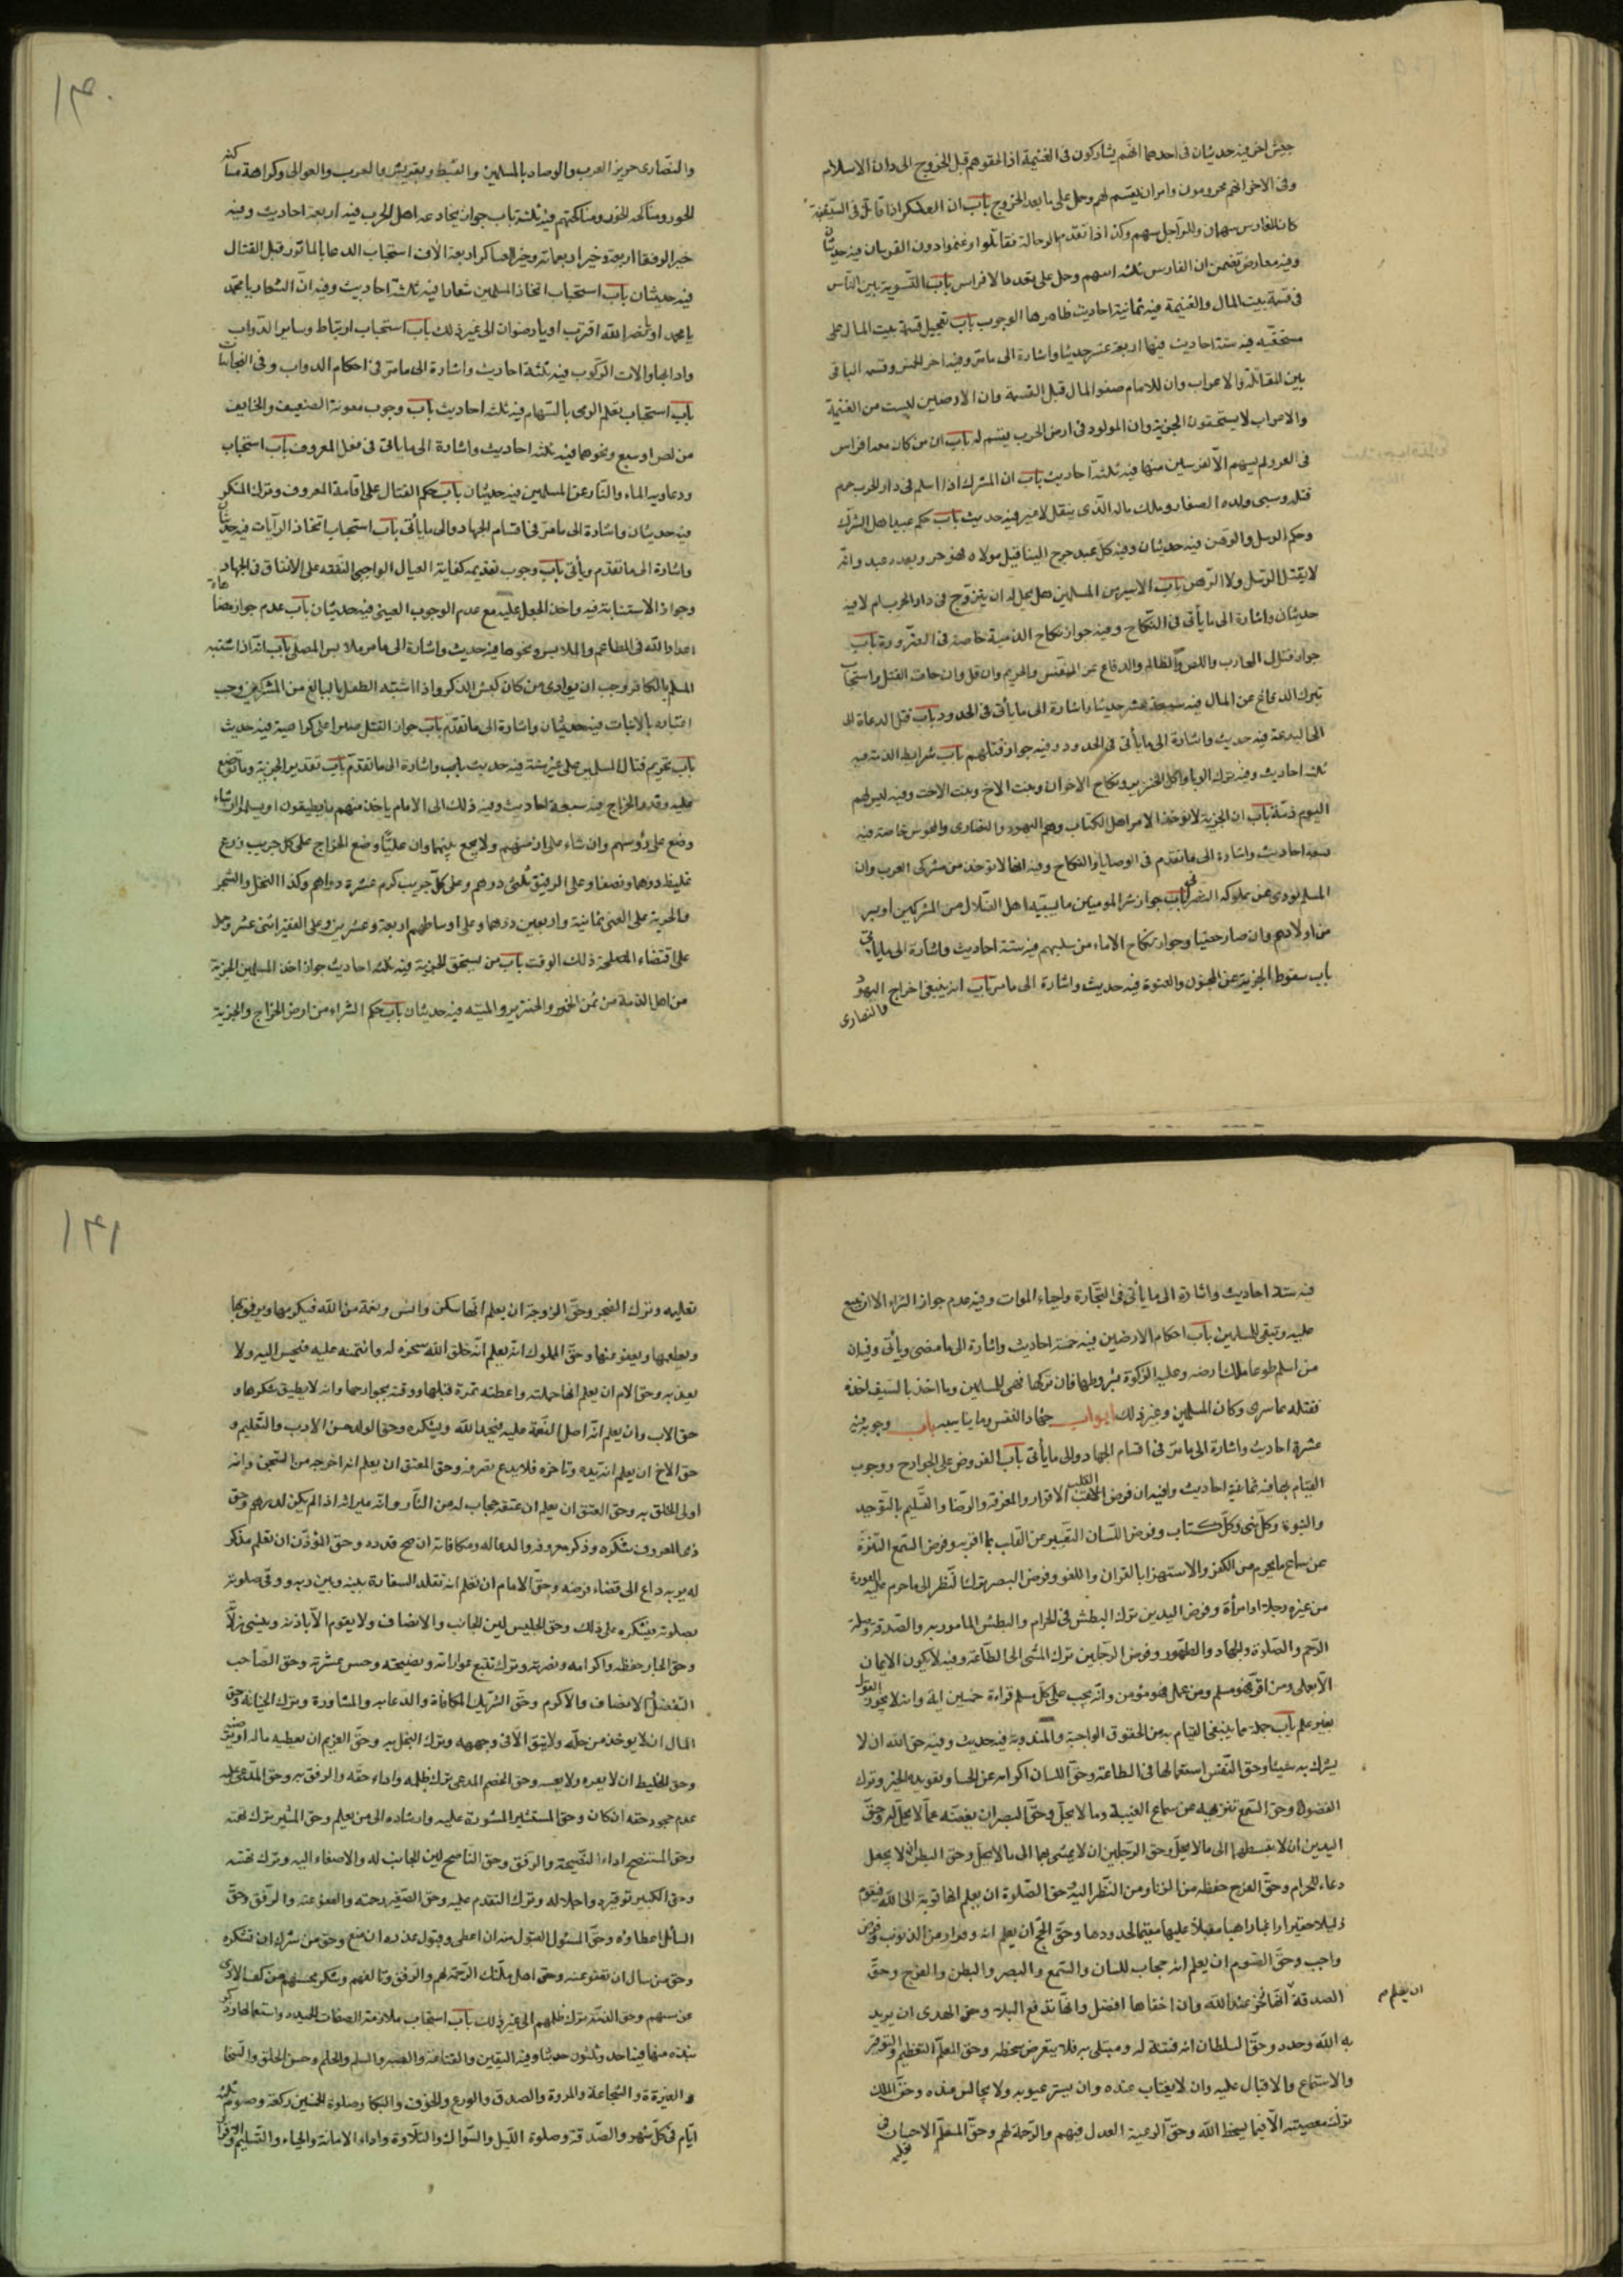 جيش اخر فيه حديثان فى احدهما انهم يشاركون فى الغنيمة اذا لحقوهم قبل الخروج الى دار الاسلام
وفى الاخر انهم محرومون وامران يقسم لهم وحمل على ما بعد الخروج باب ان العسكر اذا قاتل فى السفينة
كان للفارس سهمان وللراجل سهم وكذا اذا تقدم الرجالة فقاتلوا وغنموا دون الفرسان فيه حديثان
وفيه معارض تضمن ان الفارس ثلثة اسهم وحمل على تعدد الافراس باب التسوية بين الناس
فى قسمة بيت المال والغنيمة فيه ثمانية احاديث ظاهرها الوجوب باب تعجيل قسمة بيت المال على
مستحقيه فيه ستة احاديث فيها اربعة عشر حديثا واشارة الى ما مر وفيه اخراج الخمس وقسمة الباقى
بين المقاتلة والاعراب وان للامام صفو المال قبل القسمة وان الارضين ليست من الغنيمة
والاعراب لا يستحقون الجزية وان المولود فى ارض الحرب يقسم له باب ان من كان معه افراس
فى الغزو لم يسهم الا لفرسين منها فيه ثلثة احاديث باب ان المشرك اذا اسلم فى دار الحرب حرم
قتله وسبى ولده الصغار وملك ماله الذى ينقل لا غير فيه حديث باب حكم عبيد اهل الشرك
وحكم الرسل والرهن فيه حديثان وفيه كل عبد خرج الينا قبل مولاه فهو حر وبعده عبد وانه
لا يقتل الرسل ولا الرهن باب الاسير من المسلمين هل يحل له ان يتزوج فى دار الحرب ام لا فيه
حديثان واشارة الى ما يأتى فى النكاح وفيه جواز نكاح الذمية خاصة فى الضرورة باب
جواز قتال المحارب واللص والظالم والدفاع عن النفس والحريم وان قل وان خاف القتل واستحباب
ترك الدفاع عن المال فيه سبعة عشر حديثا واشارة الى ما يأتى فى الحدود باب قتل الدعاة الى
الى البدعة فيه حديث واشارة الى ما يأتى فى الحدود وفيه جواز قتالهم باب شرايط الذمة فيه
ثلثة احاديث وفيه ترك الربا واكل الخنزير ونكاح الاخوات وبنت الاخ وبنت الاخت وفيه ليس لهم
اليوم ذمة باب ان الجزية لا تؤخذ الا من اهل الكتاب وهم اليهود والنصارى والمجوس خاصة فيه
تسعة احاديث واشارة الى ما تقدم فى الوصايا والنكاح وفيه انها لا توخذ من مشركى العرب وان
المسلم يودى عن مملوكه النصرانى باب جواز شراء المومنين ما يسبيه اهل الضلال من المشركين او يسرق
من اولادهم وان صار خصيا وجواز نكاح الاماء من سبيهم فيه ستة احاديث واشارة الى ما يأتى
باب سقوط الجزية عن المجنون والمعتوه فيه حديث واشارة الى ما مر باب انه ينبغى اخراج اليهود
والنصارى
١٣٠
والنصارى من جزيرة العرب والوصاة بالمسلمين والقبط وبقريش والعرب والموالى وكراهة مساكنة
الخوز ومناكحة الخوز ومناكحتهم فيه ثلثة باب جواز مخادعة اهل الحرب فيه اربعة احاديث وفيه
خير الرفقا اربعة وخير السرايا اربعمائة وخير العساكر اربعة الاف استحباب الدعا بالماثور قبل القتال
فيه حديثان باب استحباب اتخاذ المسلمين شعارا فيه ثلثة احاديث وفيه ان الشعار يا محمد
يا محمد او يا نصر الله اقترب او يا رضوان الى غير ذلك باب استحباب ارتباط وساير الدواب
وادابها والات الركوب فيه ثلثة احاديث واشارة الى ما مر فى احكام الدواب وفى النجاسات
باب استحباب تعلم الرمى بالسهام فيه ثلثة احاديث باب وجوب معونة الضعيف والخايف
من لص او سبع ونحوهما فيه ثلثة احاديث واشارة الى ما ياتى فى فعل المعروف باب استحباب
رد عادية الماء والنار عن المسلمين فيه حديثان باب حكم القتال على اقامة المعروف وترك المنكر
فيه حديثان واشارة الى ما مر فى اقسام الجهاد والى ما يأتى باب استحباب اتخاذ الرايات فيه حديثان
واشارة الى ما تقدم ويأتى باب وجوب تقديمه كفاية العيال الواجبى النفقة على الانفاق فى الجهاد
وجواز الاستنابة فيه واخذ الجعل عليه مع عدم الوجوب العينى فيه حديثان باب عدم جواز مضاهاة
اعداء الله فى المطاعم والملابس ونحوها فيه حديث واشارة الى ما مر ملابس المصلى باب انه اذا اشتبه
المسلم بالكافر وجب ان يوارى من كان كميش الذكر واذا اشتبه الطفل بالبالغ من المشركين وجب
اعتباره بالانبات فيه حديثان واشارة الى ما تقدم باب جواز القتل صبرا على كراهية فيه حديث
باب تحريم قتال المسلمين على غير سنة فيه حديث باب واشارة الى ما تقدم باب تقدير الجزية وما توضع
عليه وقدر الخراج فيه سبعة احاديث وفيه ذلك الى الامام ياخذ منهم ما يطيقون او يسلموا وان شاء
وضع على رؤسهم وان شاء على ارضهم ولا يجمع بينهما وان عليا وضع الخراج على كل جريب زرع
غليظ درهما ونصفا وعلى الرقيق ثلثى درهم وعلى كل جريب كرم عشرة دراهم وكذا النخل والشجر
والجزية على الغنى ثمانية واربعين درهما وعلى اوساطهم اربعة وعشرين وعلى الفقير اثنى عشر وحمل
على اقتضاء المصلحة ذلك الوقت باب من يستحق الجزية فيه ثلثة احاديث جواز اخذ المسلمين الجزية
من اهل الذمة من ثمن الخمور والخنزير والميتة فيه حديثان باب حكم الشراء من ارض الخراج والجزية
فيه ستة احاديث واشارة الى ما يأتى فى التجارة واحياء الموات وفيه عدم جواز الشراء الا ان يبيع
عليه وتبقى للمسلمين باب احكام الارضين فيه خمسة احاديث واشارة الى ما مضى ويأتى وفيه ان
من اسلم طوعا ملك ارضه وعليه الزكوة بشروطها فان تركها فهى للمسلمين وما اخذ بالسيف اخذه
فقبله مما سرى وكان المسلمين وغير ذلك ابواب جهاد النفس وما يناسبه باب وجوبه فيه
عشرة احاديث واشارة الى ما مر فى اقسام الجهاد والى ما يأتى باب الفروض على الجوارح ووجوب
القيام بها فيه ثمانية احاديث وفيه ان فرض القلب الاقرار والمعرفة والرضا والتسليم بالتوحيد
والنبوة وكل نبى وكل كتاب وفرض اللسان التعبير عن القلب بما اقر به وفرض السمع التنزه
عن سماع ما يحرم من الكفر والاستهزا بالقران واللغو وفرض البصر ترك النظر الى ما حرم عليه العورة
من غيره رجلا او امرأة وفرض اليدين ترك البطش فى الحرام والبطش المامور به والصدقة وصلة
الرحم والصلوة والجهاد والطهور وفرض الرجلين ترك المشى الى الطاعة وفيه لا يكون الايمان
الا بعمل ومن اقر فهو مسلم ومن عمل فهو مؤمن وانه يجب على كل مسلم قراءة خمسين اية وانه لا يجوز القول
بغير علم باب جملة مما ينبغى القيام به من الحقوق الواجبة والمندوبة فيه حديث وفيه حق الله ان لا
يشرك به شيئا وحق النفس استعمالها فى الطاعة وحق اللسان اكرامه عن الخنا وتعويده الخير وترك
الفضول وحق السمع تنزيهه عن سماع الغيبة وما لا يحل وحق البصر ان يغضه عما لا يحل له وحق
اليدين ان لا يبسطهما الى ما لا يحل وحق الرجلين ان لا يمشى بهما الى ما لا يحل وحق البطن ان لا يجعل
دعاء للحرام وحق الفرج حفظه من الزنا ومن النظر اليه وحق الصلوة ان يعلم انها قربة الى الله فيقوم
ذليلا حقيرا راغبا راهبا مقبلا عليها مقيما لحدودها وحق الحج ان يعلم انه وفرار من الذنوب وفرض
واجب وحق الصوم ان يعلم انه حجاب للسان والسمع والبصر والبطن والفرج وحق
الصدقة انها ذخر عند الله وان اخفاها افضل وانها تدفع البلاء وحق الهدى ان يريد
ان يعلم
به الله وحده وحق السلطان انه فتنة له ومبتلى به فلا يتعرض سخطه وحق المعلم التعظيم والتوقير
والاستماع والاقبال عليه وان لا يغتاب عنده وان يستر عيوبه ولا يجالس عدوه وحق الملك
ترك معصيته الا فيما يسخط الله وحق الرعية العدل فيهم والرحمة لهم وحق المتعلم الاحسان فى
تعليمه
١٣١
تعليمه وترك الضجر وحق الزوجة ان يعلم انها سكن وانس ونعمة من الله فيكرمها ويرفق بها
ويطعمها ويعفو عنها وحق المملوك ان يعلم انه خلق الله سخره له وائتمنه عليه فيحسن اليه ولا
يعذبه وحق الام ان يعلم انها حملته واعطته ثمرة قبلها ووقته بجوارحها وانه لا يطيق شكرها و
حق الاب وان يعلم انه اصل النعمة عليه فيحمد الله ويشكره وحق الولد حسن الادب والتعليم و
حق الاخ ان يعلم انه يده وناصره فلا يدع نصرته وحق المعتق ان يعلم انه اخرجه من السجن وانه
اولى الخلق به وحق العتق ان يعلم ان عتقه حجاب له من النار وانه ميراثه اذا لم يكن له رحم وحق
ذى المعروف شكره وذكر معروفه والدعا له ومكافاته ان صح قدره وحق المؤذن ان تعلم مذكر
له بربه داع الى قضاء فرضه وحق الامام ان تعلم انه تقلد السفارة بينه وبين ربه ووقى صلوته
بصلوته فيشكره على ذلك وحق الجليس لين الجانب والانصاف ولا يقوم الا باذنه وينسى زلا
وحق الجار حفظه واكرامه ونصرته وترك تتبع عوراته ونصيحته وحسن عشرته وحق الصاحب
التفضل والانصاف والاكرام وحق الشريك المكافاة والدعا به والمشاورة وترك الخيانة وحق
المال ان لا يوخذ من حله ولا ينفق الا فى وجهه وترك البخل به وحق الغريم ان يعطيه ماله او
وحق الخليط ان لا يغره ولا يغشه وحق الخصم المدعى ترك ظلمه واداء حقه والرفق به وحق المدعى عليه
عدم جحود حقه ان كان وحق المستشير المشورة عليه وارشاده الى من يعلم وحق المشير ترك تهمته
وحق المستنصح اداء النصيحة والرفق وحق الناصح لين الجانب له والاصغاء اليه وترك تهمته
وحق الكبير توقيره واجلاله وترك التقدم عليه وحق الصغير رحمته والعفو عنه والرفق وحق
السائل اعطاؤه وحق المسئول القبول منه ان اعطى وقبول عذره ان منع وحق من سرك ان تشكره
وحق من ساءك ان تعفو عنه وحق اهل ملتك الرحمة لهم والرفق وتالفهم وشكر محسنهم وكف الاذى
عن مسيئهم وحق الذمة ترك ظلمهم الى غير ذلك باب استحباب ملازمة الصفات الحميدة واستعمالها وذكر
نبذة منها فيه احد وثلثون حديثا وفيه اليقين والقناعة والصبر والسلم والحلم وحسن الخلق والسخا
والغيرة والشجاعة والمروة والصدق والورع والخوف والبكا وصلوة الخمسين ركعة وصوم ثلثة
ايام فى كل شهر والصدقة وصلوة الليل والسواك والتلاوة واداء الامانة والحياء والتسليم